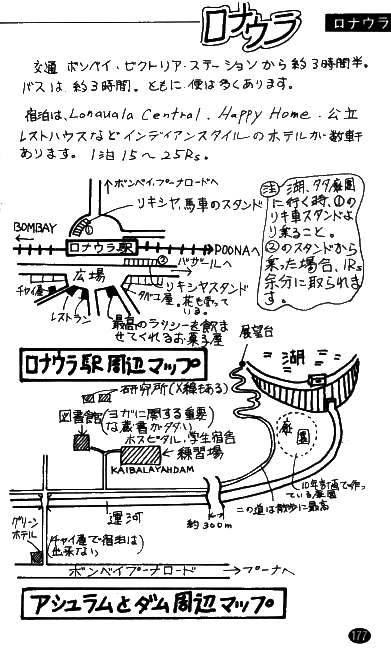 ロナウラ
ロナウラ
交通 ボンベイ・ビクトリア・ステーションから約3時間半。
バスは約3時間。ともに便は多くあります。
宿泊は、Lonauala Central、Happy Home、公立
レストハウスなどインディアンスタイルのホテルが数軒
あります。1泊15〜25Rs。
↑ボンベイ・プーナロードへ
リキシャ、馬車のスタンド
①
BOMBAY
ロナウラ駅
POONAへ
②
バザールへ
広場
チャイ屋
レストラン
タバコ屋。
リキシャスタンド
最高のラッシーを飲ま
せてくれるお菓子屋
注 湖、ダダ庭園
に行く時、①の
リキ車スタンドよ
り乗ること。
②のスタンドから
乗った場合、1Rs
余分に取られま
す。
ロナウラ駅周辺マップ
展望台
湖
研究所(X線もある)
図書館
(ヨガに関する重要
な蔵書が多い)
ホスピタル、学生宿舎
練習場
KAIBALAYAHDAM
庭園
10年計画で作っ
ている庭園
この道は散歩に最高
約300m
運河
グリーン
ホテル
(チャイ屋で宿泊は
出来ない)
ボンベイプーナロード
→プーナへ
アシュラムとダム周辺マップ
177